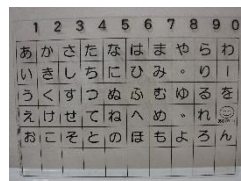 1 2 3 4 5 6 7 8 9 0
あ か さ た な は ま や ら わ
い き し ち に ひ み 。 り ー
う く す つ ぬ ふ む ゆ る を
え け せ て ね へ め 、 れ
お こ そ と の ほ も よ ろ ん